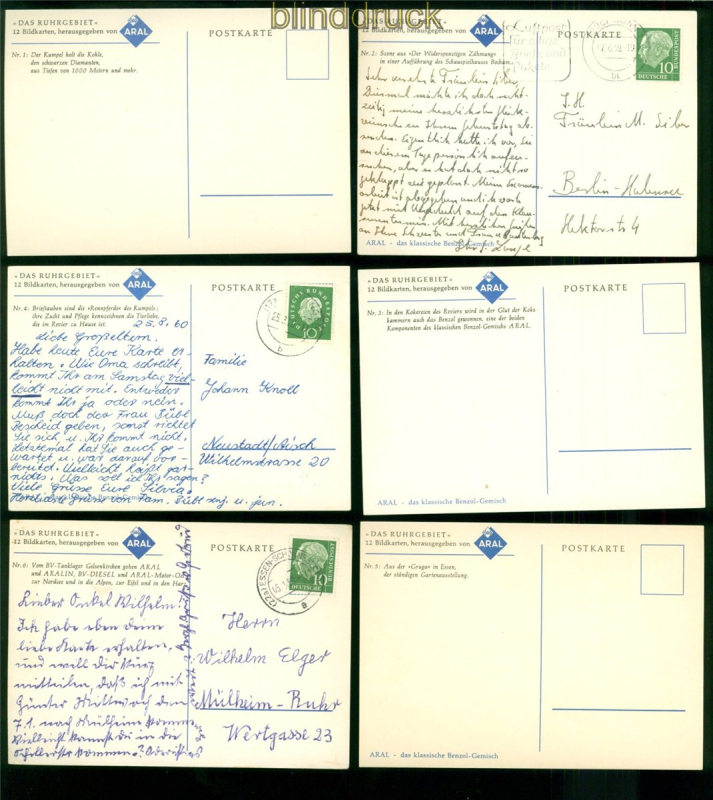 blinddruck
»DAS RUHRGEBIET«
12 Bildkarten, herausgegeben von ARAL
POSTKARTE
Nr. 1: Der Kumpel holt die Kohle,
den schwarzen Diamanten,
aus Tiefen von 1000 Metern und mehr.
»DAS RUHRGEBIET«
12 Bildkarten, herausgegeben von ARAL
POSTKARTE
Nr. 2: Szene aus »Der Widerspenstigen Zähmung«
in einer Aufführung des Schauspielhauses Bochum.
Luftpost
10
DEUTSCHE BUNDESPOST
Sehr verehrtes Fräulein
Diesmal möchte ich doch recht-
zeitig meine herzlichsten Glück-
wünsche zu Ihrem Geburtstag ab-
senden. Eigentlich hatte ich vor, Sie
an diesem Tage persönlich aufzu-
suchen, aber es hat doch nicht so
geklappt wie geplant. Mein Examen
arbeit ist abgegeben und ich
jetzt mit auf das
Mit herzlichen Grüßen
an Ihre Schwester und Frau
Fräulein M.
Berlin-Halensee
Hektorstr 4
ARAL - das klassische Benzol-Gemisch
»DAS RUHRGEBIET«
12 Bildkarten, herausgegeben von ARAL
POSTKARTE
Nr. 4: Brieftauben sind die »Rennpferde« des Kumpels;
ihre Zucht und Pflege kennzeichnen die Tierliebe,
die im Revier zu Hause ist.
DEUTSCHE BUNDESPOST
10
25.8.60
Liebe Großeltern.
Habe heute Eure Karte er-
halten. Wie Oma schreibt,
kommt Ihr am Samstag viel-
leicht nicht mit. Entweder
kommt Ihr ja oder nein.
Muß doch der Frau Sübl
Bescheid geben, sonst richtet
Sie sich u. Ihr kommt nicht.
Letztemal hat Sie auch ge-
wartet u. war darauf vor-
bereitet. Vielleicht heißt gar-
nichts. Was soll ich Ihr sagen?
Viele Grüsse Eure Silvia.
Herzliche Grüsse von Fam. Sübl sen. u. jun.
Familie
Johann Knoll
Neustadt/Aisch
Wilhelmstrasse 20
»DAS RUHRGEBIET«
12 Bildkarten, herausgegeben von ARAL
POSTKARTE
Nr. 3: In den Kokereien des Reviers wird in der Glut der Koks
kammern auch das Benzol gewonnen, eine der beiden
Komponenten des klassischen Benzol-Gemischs ARAL.
ARAL - das klassische Benzol-Gemisch
»DAS RUHRGEBIET«
12 Bildkarten, herausgegeben von ARAL
POSTKARTE
Nr. 6: Vom BV-Tanklager Gelsenkirchen gehen ARAL
und ARALIN, BV-DIESEL und ARAL-Motor-Oel
zur Nordsee und in die Alpen, zur Eifel und in den Harz
(22a) ESSEN
10
DEUTSCHE BUNDESPOST
Lieber Onkel Wilhelm!
Ich habe eben deine
liebe Karte erhalten,
und will dir kurz
mitteilen, daß ich mit
Günter Mittwoch den
7.1. nach Mülheim komme
Vielleicht kannst du in die
Schillerstr kommen?
Herrn
Wilhelm Elger
Mülheim-Ruhr
Wertgasse 23
»DAS RUHRGEBIET«
12 Bildkarten, herausgegeben von ARAL
POSTKARTE
Nr. 5: Aus der »Gruga« in Essen,
der ständigen Gartenausstellung.
ARAL - das klassische Benzol-Gemisch